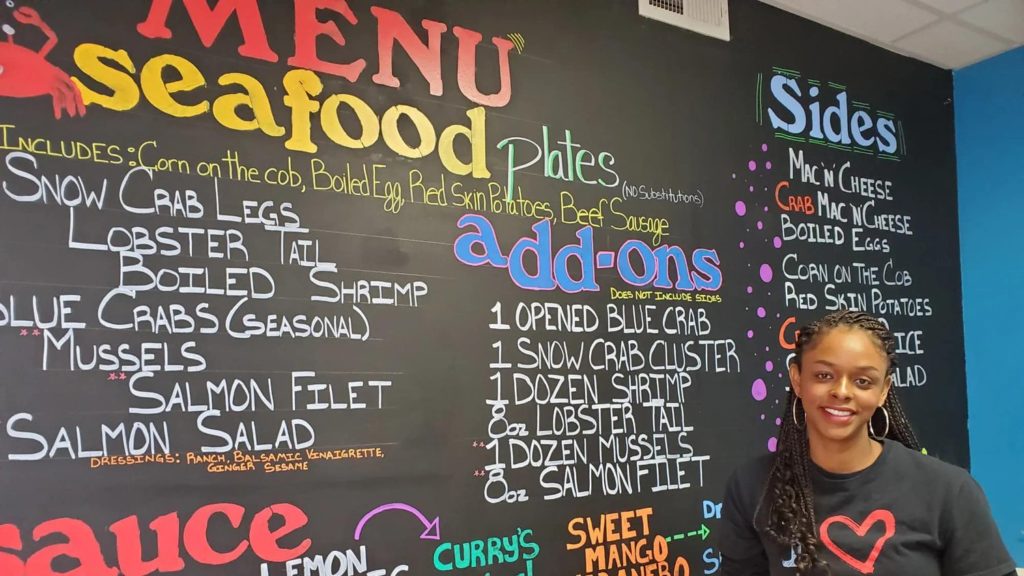 MENU
seafood plates (NO Substitutions)
INCLUDES: Corn on the cob, Boiled Egg, Red Skin Potatoes, Beef Sausage
SNOW CRAB LEGS
LOBSTER TAIL
BOILED SHRIMP
BLUE CRABS (SEASONAL)
**MUSSELS
**SALMON FILET
SALMON SALAD
DRESSINGS: RANCH, BALSAMIC VINAIGRETTE,
GINGER SESAME
add-ons
DOES NOT INCLUDE SIDES
1 OPENED BLUE CRAB
1 SNOW CRAB CLUSTER
1 DOZEN SHRIMP
8oz LOBSTER TAIL
**1 DOZEN MUSSELS
**8oz SALMON FILET
Sides
MAC'N'CHEESE
CRAB MAC'N'CHEESE
BOILED EGGS
CORN ON THE COB
RED SKIN POTATOES
sauce
LEMON
CURRY'S
SWEET
MANGO